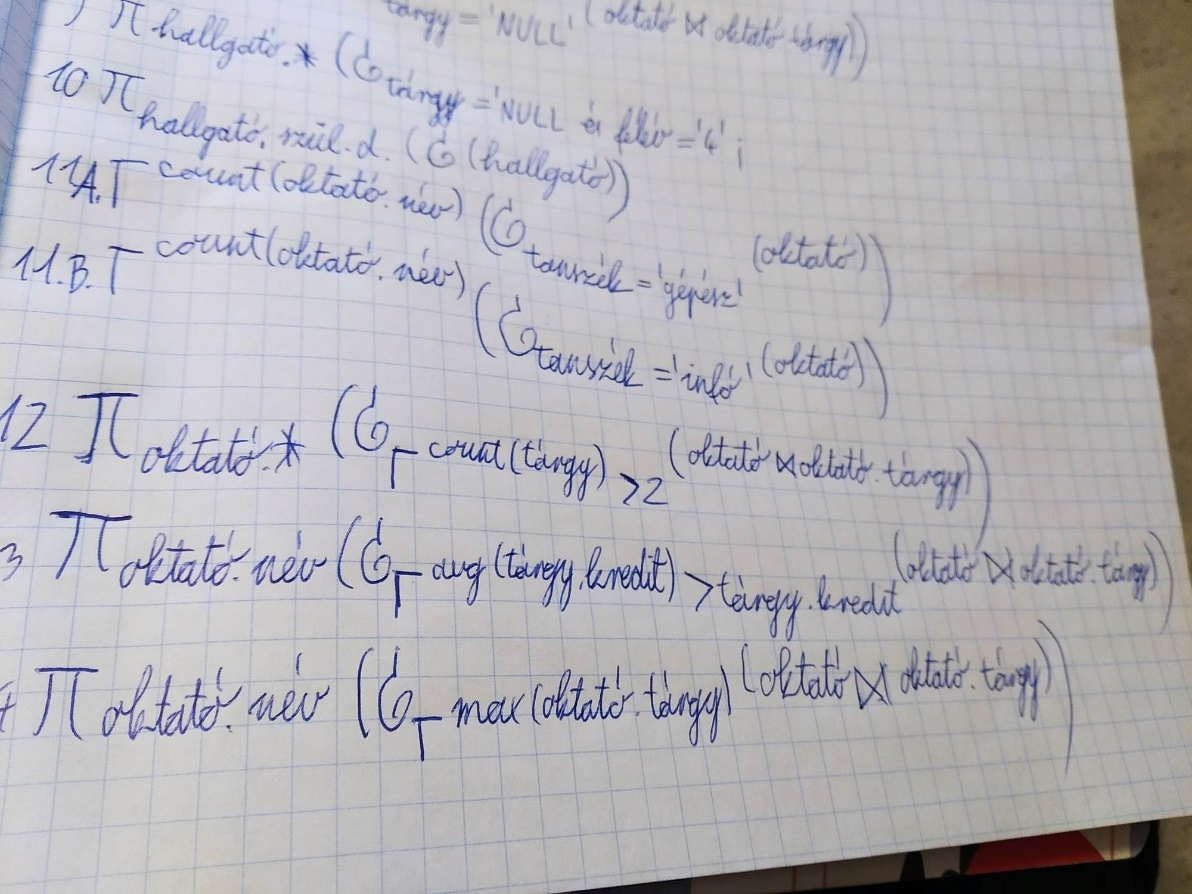 tárgy = 'NULL' (oktató ⋈ oktató.tárgy))
) π hallgató.* (σ tárgy = 'NULL és félév = '4' ;
10 π hallgató.szül.d. (σ (hallgató))
11A. Γ count(oktató.név) (σ tanszék = 'gépész' (oktató))
11.B. Γ count(oktató.név) (σ tanszék = 'infó' (oktató))
12 π oktató.* (σ Γ count(tárgy) >2 (oktató ⋈ oktató.tárgy))
3 π oktató.név (σ Γ avg(tárgy.kredit) > tárgy.kredit (oktató ⋈ oktató.tárgy))
π oktató.név (σ Γ max(oktató.tárgy) (oktató ⋈ oktató.tárgy))